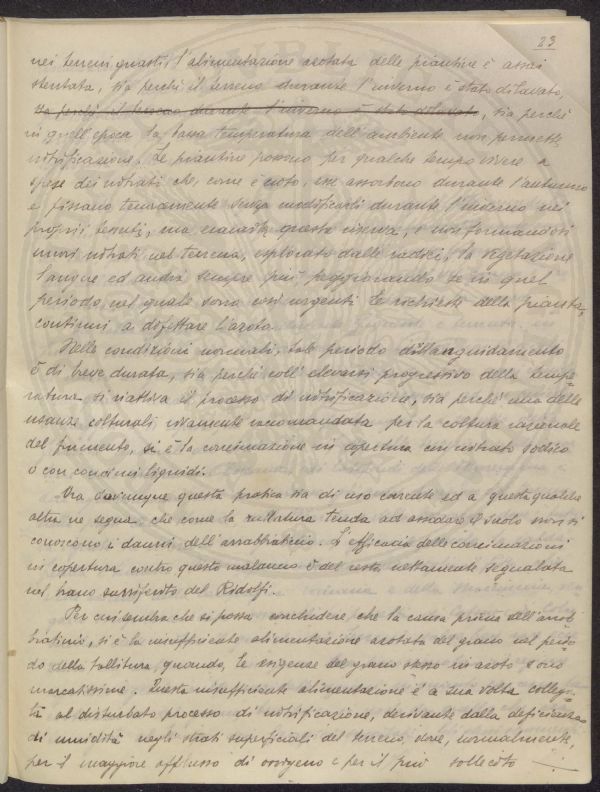 23
nei terreni guasti l'alimentazione azotata delle piantine è assai
stentata, sia perchè il terreno durante l'inverno è stato dilavato,
sia perchè il terreno durante l'inverno è stato dilavato, sia perchè
in quell'epoca la bassa temperatura dell'ambiente non permette
nitrificazione. Le piantine possono per qualche tempo vivere a
spese dei nitrati che, come è noto, esse assorbono durante l'autunno
e fissano tenacemente senza modificarli durante l'inverno nei
proprii tessuti, ma esaurita questa riserva, e non formandosi
nuovi nitrati nel terreno, esplorato dalle radici, la vegetazione
langue ed andrà sempre più peggiorando se in quel
periodo nel quale sono così urgenti le richieste della pianta,
continui a difettare l'azoto.
Nelle condizioni normali, tale periodo d'illanguidamento
è di breve durata, sia perchè coll'elevarsi progressivo della tempe-
ratura si riattiva il processo di nitrificazione, sia perchè una delle
usanze colturali vivamente raccomandata per la coltura razionale
del frumento, si è la concimazione in copertura con nitrato sodico
o con concimi liquidi.
Ora dovunque questa pratica sia di uso corrente ed a questa qualche
altra ne segua che come la rullatura tenda ad assodare il suolo non si
conoscono i danni dell'arrabbiaticcio. L'efficacia delle concimazioni
in copertura contro questo malanno è del resto nettamente segnalata
nel brano surriferito del Ridolfi.
Per cui sembra che si possa concludere che la causa prima dell'arrab-
biaticcio, si è la insufficiente alimentazione azotata del grano nel perio-
do della tallitura, quando, le esigenze del grano stesso in azoto sono
marcatissime. Questa insufficiente alimentazione è a sua volta collega-
ta al disturbato processo di nitrificazione, derivante dalla deficienza
di umidità negli strati superficiali del terreno, dove, normalmente,
per il maggiore afflusso di ossigeno e per il più sollecito